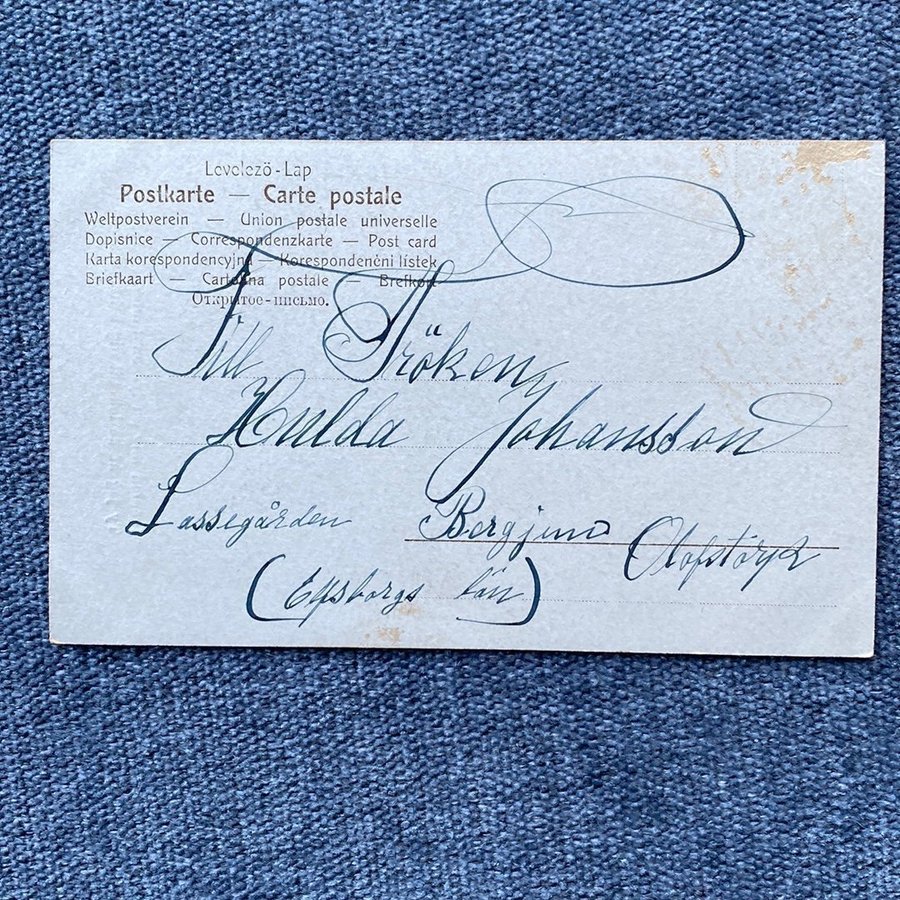 Levelező-Lap
Postkarte — Carte postale
Weltpostverein — Union postale universelle
Dopisnice — Correspondenzkarte — Post card
Karta korespondencyjna — Korespondenční lístek
Briefkaart — Cartolina postale — Brefkort
Открытое-письмо.
Till Fröken
Hulda Johansson
Lassegården Bergjum Olofstorp
(Elfsborgs län)